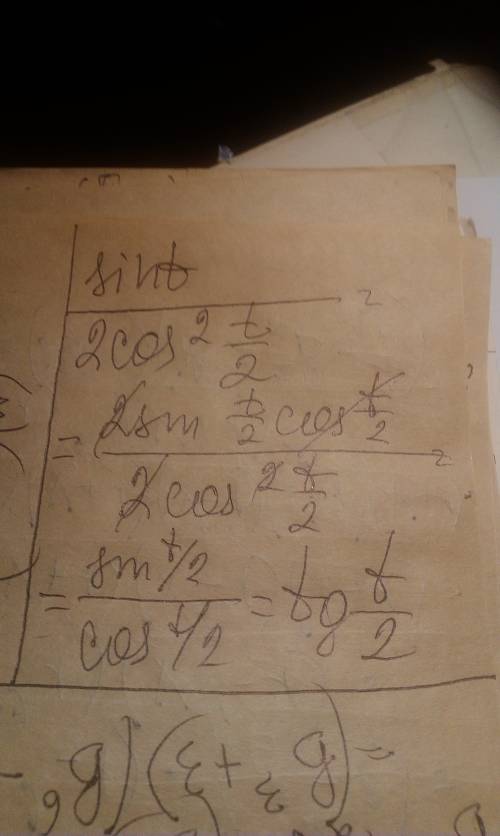 sin t / 2cos² t/2 =
= 2sin t/2 cos t/2 / 2cos² t/2 =
= sin t/2 / cos t/2 = tg t/2